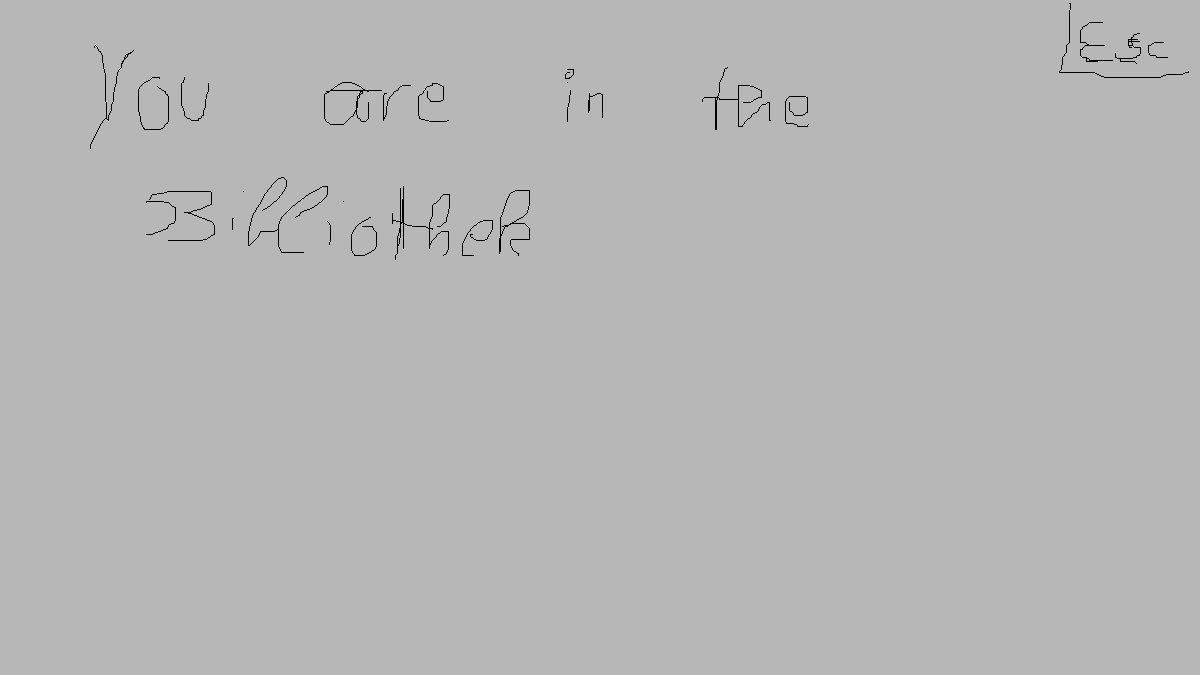 Esc
You are in the
Bibliothek